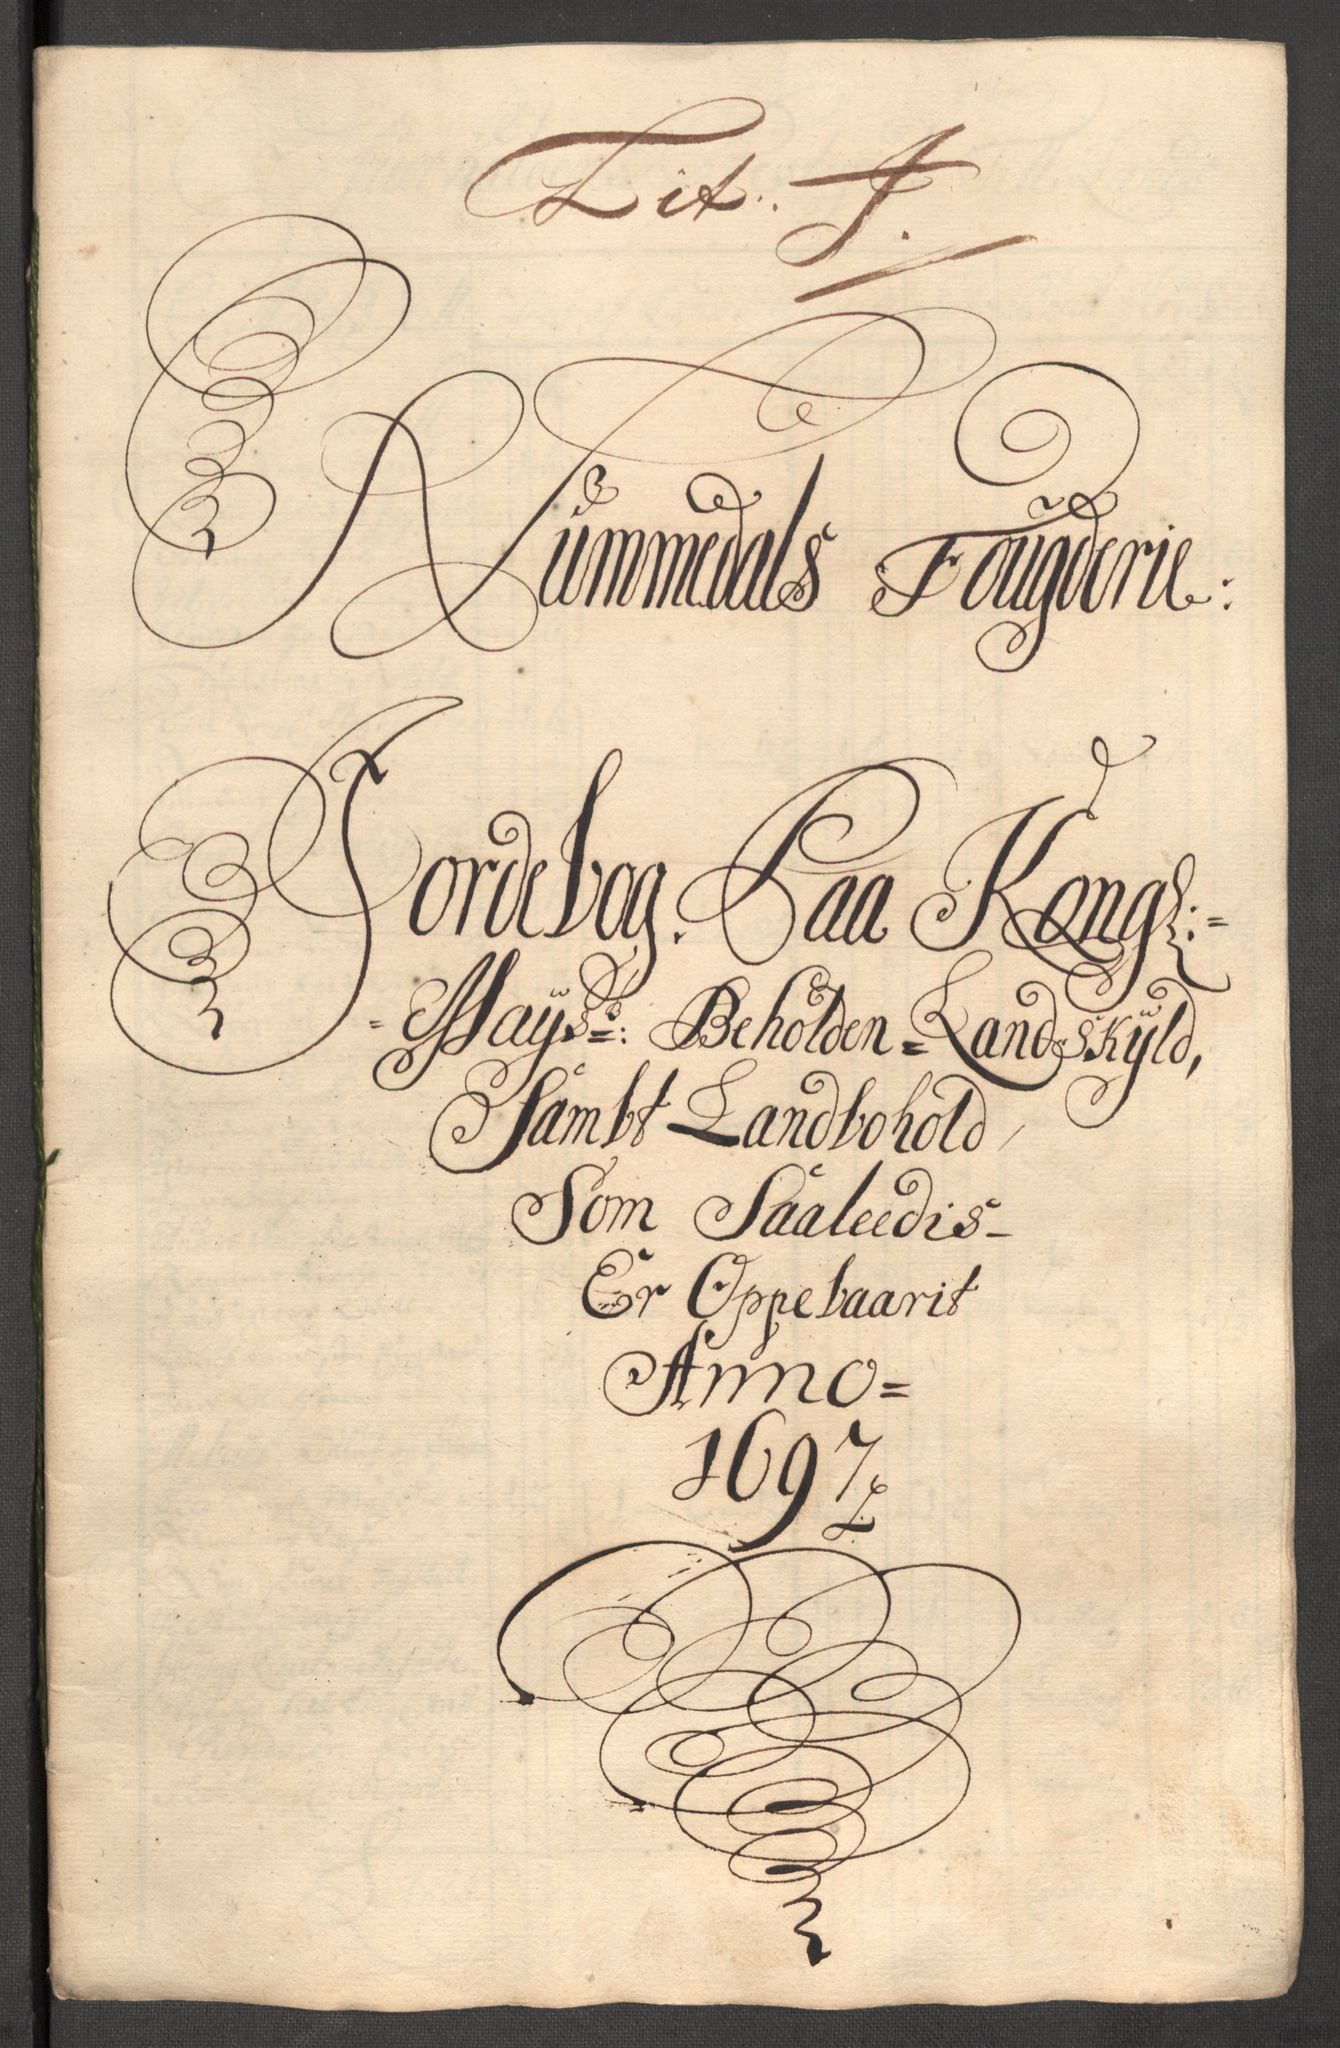 Lit. A.
Nummedals Fougderie:
Jordebog. Paa Kongl:=
=Mayts: Beholden=Landskyld,
Sambt Landbohold
Som Saaleedis-
Er Oppebaarit
Anno=
1697